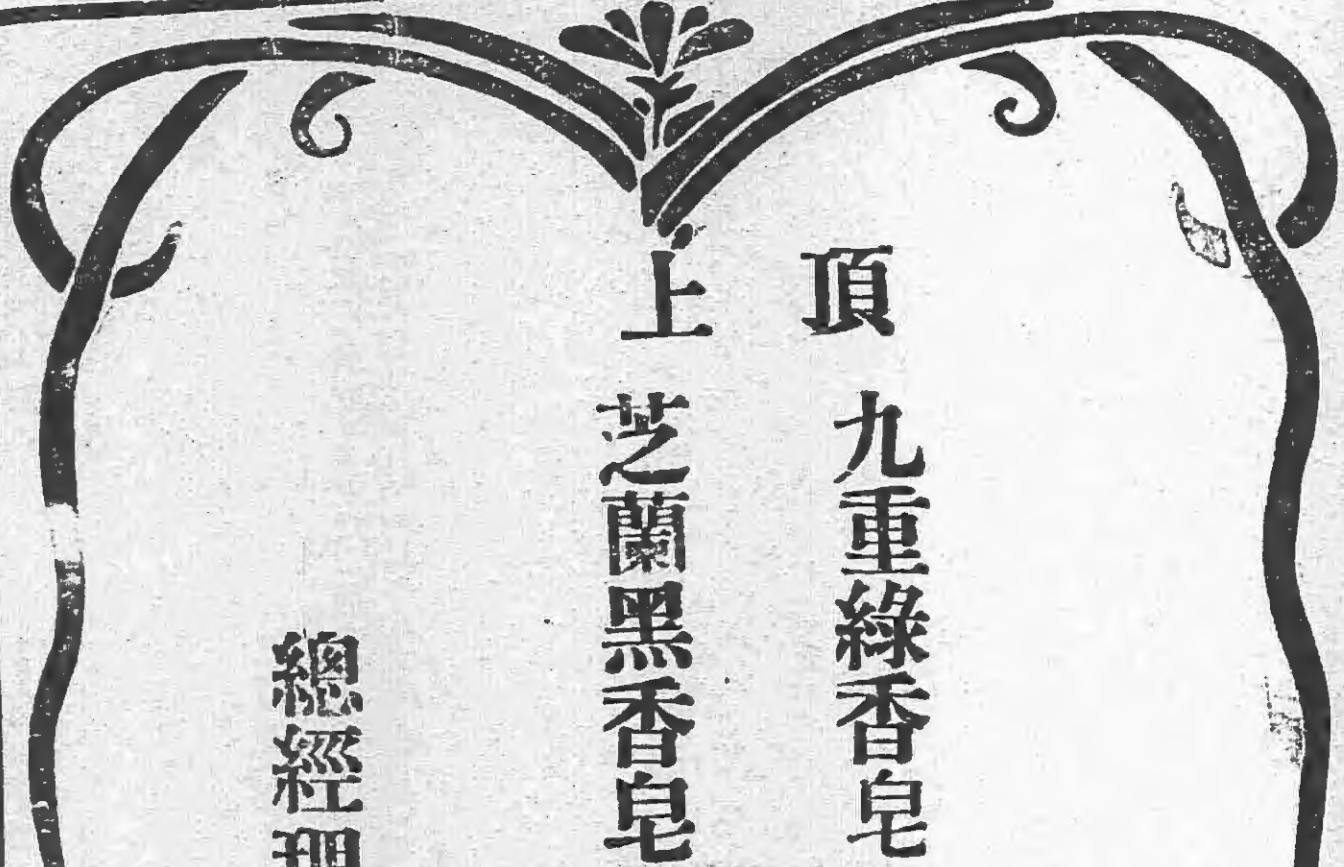 頂上
九重綠香皂
芝蘭黑香皂
總經理